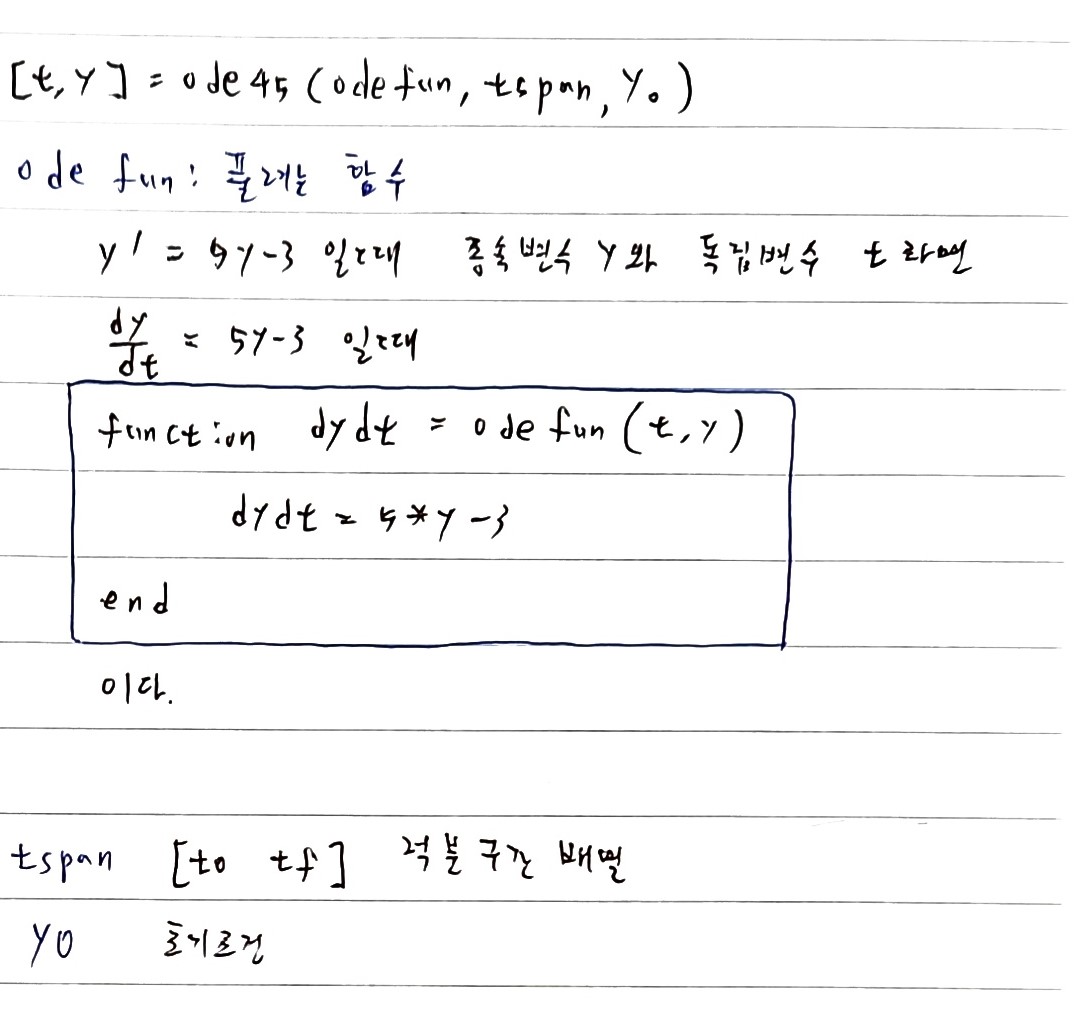 [t, y] = ode45 (odefun, tspan, y₀)
ode fun: 풀려는 함수
y' = 5y-3 일때 종속변수 y와 독립변수 t라면
dy/dt = 5y-3 일때
function dydt = odefun (t, y)
dydt = 5*y-3
end
이다.
tspan [to tf] 적분구간 배열
y0 초기조건